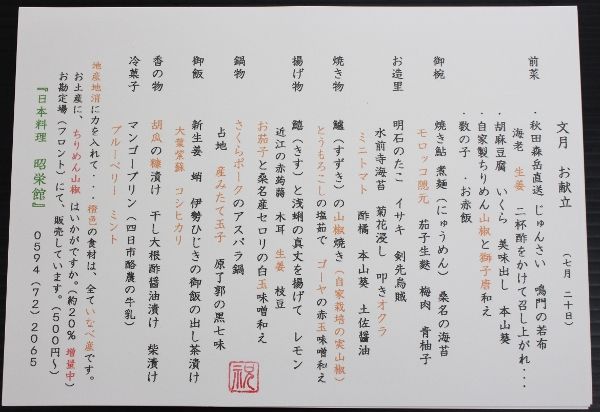 文月　お献立
（七月　二十日）
前菜　・秋田森岳直送　じゅんさい　鳴門の若布
海老　生姜　二杯酢をかけて召し上がれ・・・
・胡麻豆腐　いくら　美味出し　本山葵
・自家製ちりめん山椒と獅子唐和え
・数の子　・お赤飯
御椀　焼き鮎　煮麺（にゅうめん）　桑名の海苔
モロッコ隠元　茄子生麩　梅肉　青柚子
お造里　明石のたこ　イサキ　剣先烏賊
水前寺海苔　菊花浸し　叩きオクラ
ミニトマト　酢橘　本山葵　土佐醤油
焼き物　鱸（すずき）の山椒焼き（自家栽培の実山椒）
とうもろこしの塩茹で　ゴーヤの赤玉味噌和え
揚げ物　鱚（きす）と浅蜊の真丈を揚げて　レモン
近江の赤蒟蒻　木耳　生姜　枝豆
お茄子と桑名産セロリの白玉味噌和え
鍋物　さくらポークのアスパラ鍋
占地　産みたて玉子　原了郭の黒七味
御飯　新生姜　蛸　伊勢ひじきの御飯の出し茶漬け
大葉紫蘇　コシヒカリ
香の物　胡瓜の糠漬け　干し大根酢醤油漬け　柴漬け
冷菓子　マンゴープリン（四日市酪農の牛乳）
ブルーベリー　ミント
地産地消に力を入れて・・・橙色の食材は、全ていなべ産です。
お土産に、ちりめん山椒はいかがですか。（約20％　増量中）
お勘定場（フロント）にて、販売しています。（500円～）
『日本料理　昭栄館』　0594（72）2065
祝